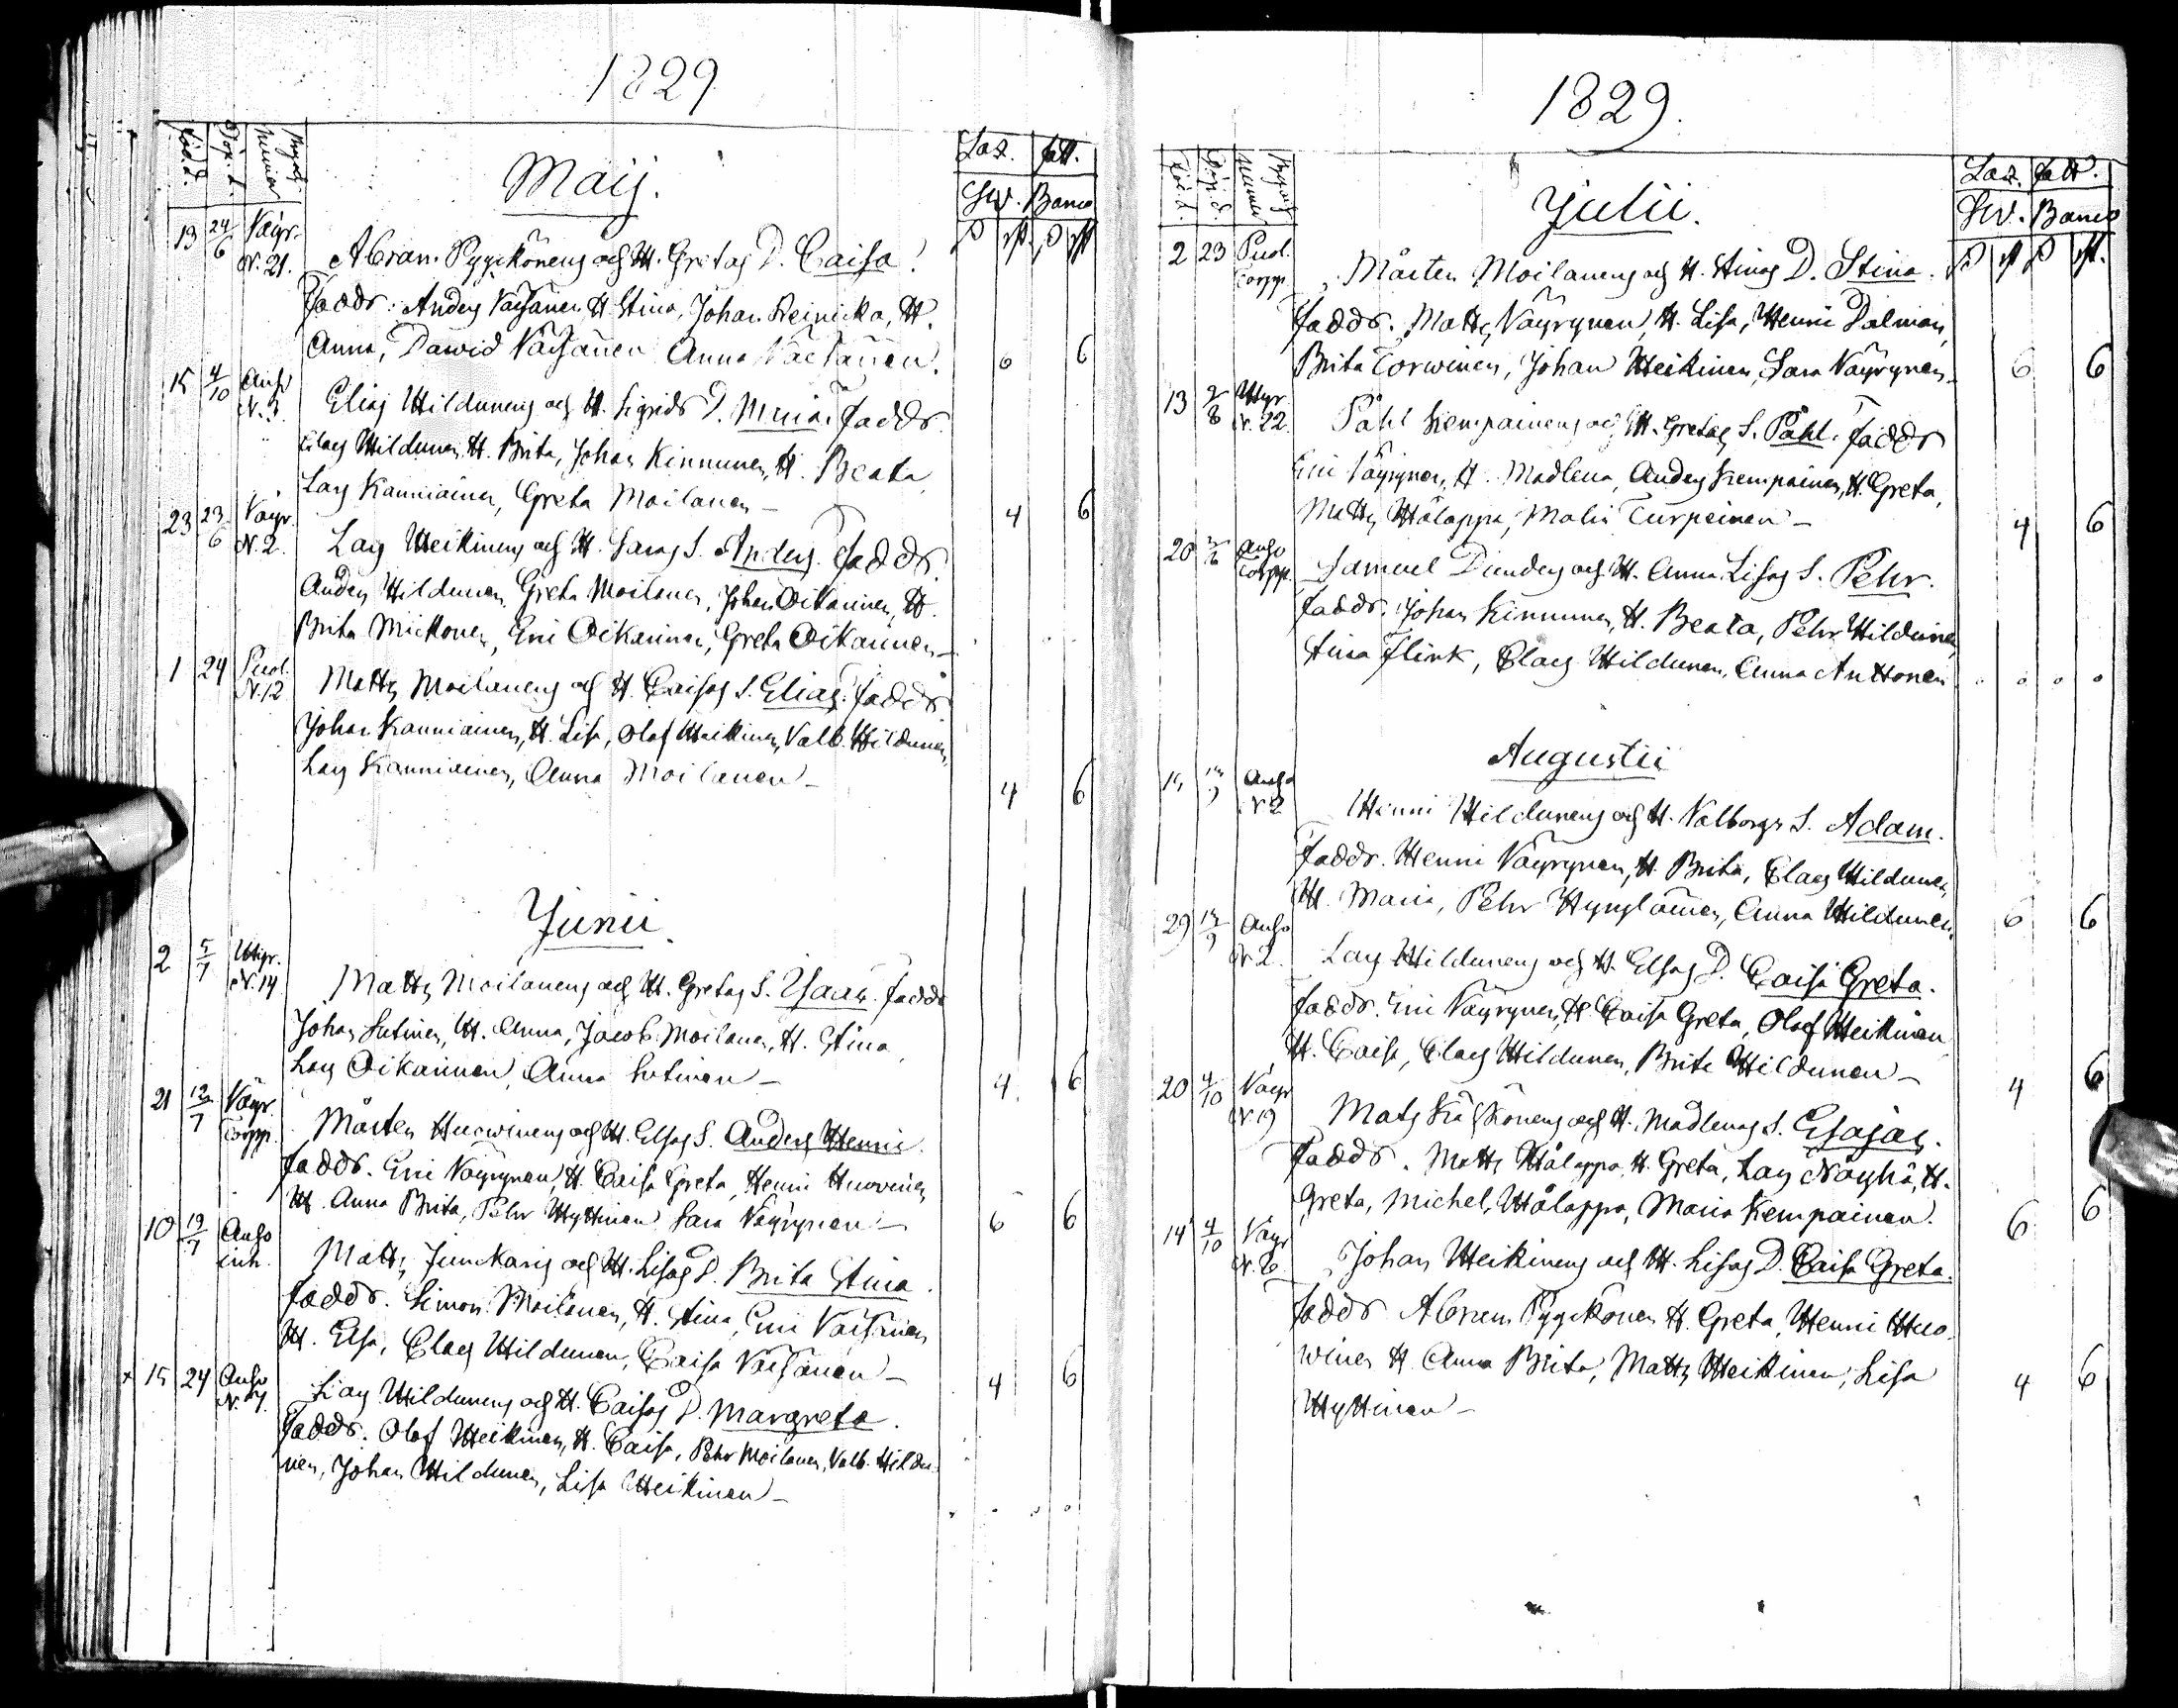 1829
Född.
Döp. d.
Byar
Numer
Maij.
Laz. fatt.
Sw. Banco
13 24/6 Väyr. N. 21.
Abram Pyykönens och H. Gretas D. Caisa.
Faddr: Anders Väisänen H. Stina, Johan Reinicka, H.
Anna, Dawid Väisänen Anna Väisänen. 6 6
15 4/10 Anso N. 3
Elias Hildunens och H. Sigrids D. Maria. Faddr.
Claes Hildunen H. Brita, Johan Kinnunen, H. Beata
Lars Kanniainen, Greta Moilanen – 4 6
23 23/6 Väyr. N. 2.
Lars Heikinens och H. Saras S. Anders. Faddr.
Anders Hildunen, Greta Moilanen, Johan Oikarinen, H.
Brita Mickonen, Eric Oikarinen, Greta Oikarinen –
1 24 Puol. N. 12
Matts Moilanens och H. Caisas S. Elias. Faddr
Johan Kanniainen, H. Lisa, Olof Heikinen, Valb. Hildunen,
Lars Kanniainen, Anna Moilanen – 4 6
Junii.
2 5/7 Hyr. N. 14
Matts Moilanens och H. Gretas S. Isaac. Faddr
Johan Sutinen, H. Anna, Jacob Moilanen, H. Stina,
Lars Oikarinen, Anna Sutinen – 4 6
21 12/7 Väyr. Torpp.
Mårten Huowinens och H. Elsas S. Anders Henric.
Faddr. Eric Väyrynen, H. Caisa Greta, Henric Huovinen,
H. Anna Brita, Pehr Hyttinen Sara Väyrynen – 6 6
10 19/7 Anso inh.
Matts Junckaris och H. Lisas D. Brita Stina.
Faddr. Simon Moilanen, H. Stina, Eric Väisänen
H. Elsa, Claes Hildunen, Caisa Väisänen – 4 6
15 24 Anso N. 7
Lars Hildunens och H. Caisas D. Margreta.
Faddr. Olof Heikinen, H. Caisa, Pehr Moilanen, Valb. Hildu
nen, Johan Hildunen, Lisa Heikinen –
1829.
Född.
Döp. d.
Byar
Numer
Julii.
Laz. fatt.
Sw. Banco
2 23 Puol. Torpp.
Mårten Moilanens och H. Stinas D. Stina.
Faddr. Matts Väyrynen, H. Lisa, Henric Dalman,
Brita Torwinen, Johan Heikinen, Sara Väyrynen 6 6
13 2/8 Hyr. N. 22.
Påhl Kempainens och H. Gretas S. Påhl. Faddr
Eric Väyrynen, H. Madlena, Anders Kempainen, H. Greta,
Matts Hålappa, Malin Turpeinen – 4 6
20 Anso Torpp.
Samuel Dunders och H. Anna Lisas S. Pehr.
Faddr. Johan Kinnunen, H. Beata, Pehr Hildunen,
Stina Flink, Claes Hildunen, Anna Anttonen
Augustii
Anso N 2
Henric Hildunens och H. Valborgs S. Adam.
Faddr. Henric Väyrynen, H. Brita, Claes Hildunen,
H. Maria, Pehr Hyryläinen, Anna Hildunen. 6 6
29 Anso N 2.
Lars Hildunens och H. Elsas D. Caisa Greta.
Faddr. Eric Väyrynen, H. Caisa Greta, Olof Heikinen
H. Caisa, Claes Hildunen, Brita Hildunen – 4 6
20 4/10 Väyr N. 19
Mats Kähkönens och H. Madlenas S. Esajas.
Faddr. Matts Hålappa, H. Greta, Lars Näyhä, H.
Greta, Michel Hålappa, Maria Kempainen. 6 6
14 4/10 Väyr N. 6.
Johan Heikinens och H. Lisas D. Caisa Greta.
Faddr Abram Pyykönen H. Greta, Henric Huo
winen H. Anna Brita, Matts Heikinen, Lisa 4 6
Hyttinen –